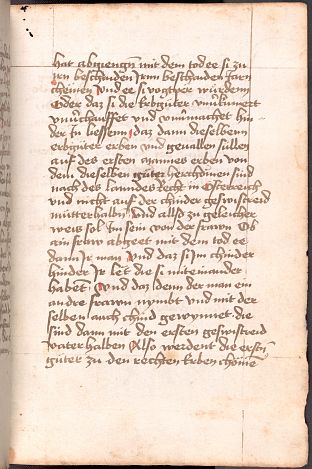 hat abgiengn mit dem tode e si zu
irn beschaiden Irnn beschaiden Jarn
chemen Und e si vogtper wurdenn
Oder daz si die Erbgüter unverkumert
unverchauffet und unvermachet hin
der in liessenn daz dann dieselbenn
erbgüter erben und geuallen sullen
auf des ersten mannes erben von
dem dieselben güter herchömen sind
nach des lanndes Recht in Osterreich
und nicht auf der chinder geswistreid
mütterhalbn Und allso zu geleicher
weis sol Im sein von der frawn Ob
ain fraw abgeet mit dem tod ee
dann Ir man Und daz si Im chinder
hinder Ir let die si miteinander
habent Und daz denn der man ein
andre frawn nymbt und mit der
selben auch chind gewynnet die
sind dann mit den ersten geswistreid
vater halben Also werdent die ersten
güter zu den rechten Erben chömen